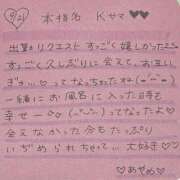 9/21 本指名 Kサマ♥♥
出勤リクエストすっごく嬉しかった
すっごく久しぶりに会えて、お互い
ぎゅ…♡ってなっちゃったね(=´-`=)
一緒にお風呂に入った時も
幸せー♡(ᵕ̈ )ってなったよ♡
会えなかった分もたっぷり
いぢめられちゃって…大好き♡
♡あやめ♡